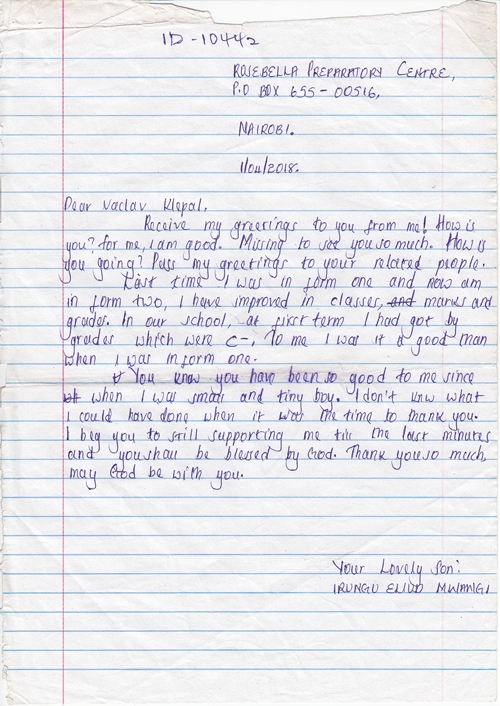 ID-10442
ROSEBELLA PREPARATORY CENTRE,
P.O BOX 655-00516,
NAIROBI.
1/04/2018.
Dear Vaclav Klepal,
Receive my greetings to you from me! How is
you? for me, i am good. Missing to see you so much. How is
you going? Pass my greetings to your related people.
Last time I was in form one and now am
in form two, I have improved in classes, and marks and
grades. In our school, at first term I had got by
grades which were C-, To me I was it a good man
when I was in form one.
You know you have been so good to me since
when I was small and tiny boy. I don't knw what
I could have done when it was the time to thank you.
I beg you to still supporting me till the last minutes
and you shall be blessed by God. Thank you so much,
may God be with you.
Your Lovely Son:
IRUNGU ELIUD MWANIGI